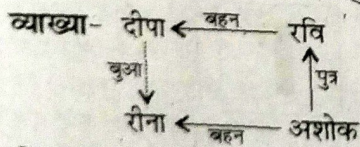 व्याख्या- दीपा बहन रवि
बुआ पुत्र
रीना बहन अशोक